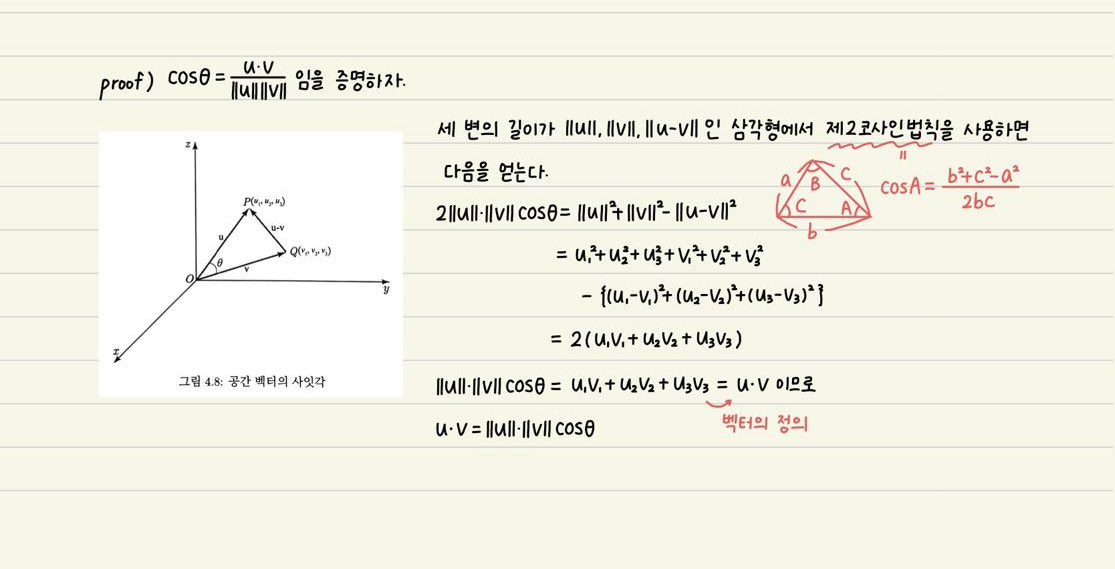 proof) cosθ = u·v / ||u|| ||v|| 임을 증명하자.
z
P(u₁, u₂, u₃)
u
u-v
θ
Q(v₁, v₂, v₃)
v
O
y
x
그림 4.8: 공간 벡터의 사잇각
세 변의 길이가 ||u||, ||v||, ||u-v|| 인 삼각형에서 제2코사인법칙을 사용하면
다음을 얻는다.
=
a B c
C A
b
cosA = b²+c²-a² / 2bc
2||u||·||v|| cosθ = ||u||² + ||v||² - ||u-v||²
= u₁² + u₂² + u₃² + v₁² + v₂² + v₃²
- {(u₁-v₁)² + (u₂-v₂)² + (u₃-v₃)²}
= 2(u₁v₁ + u₂v₂ + u₃v₃)
||u||·||v|| cosθ = u₁v₁ + u₂v₂ + u₃v₃ = u·v 이므로
벡터의 정의
u·v = ||u||·||v|| cosθ